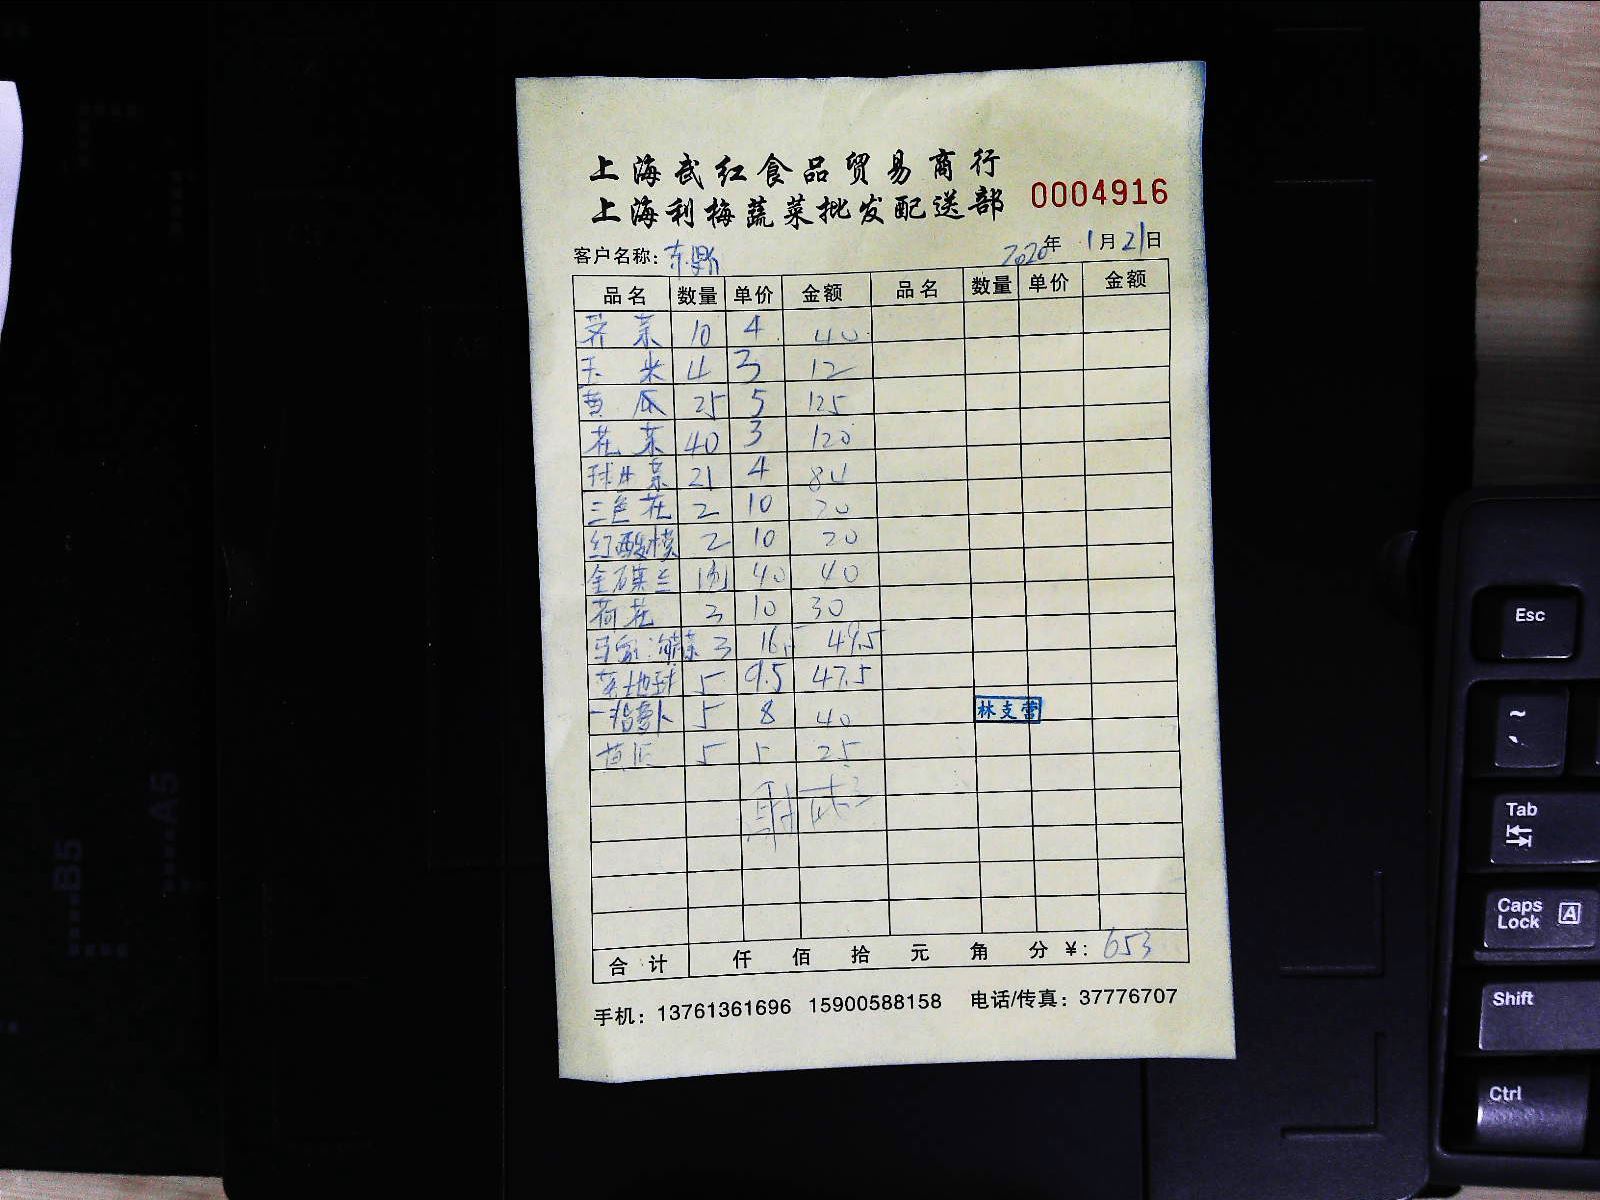 上海武红食品贸易商行
上海利梅蔬菜批发配送部
0004916
客户名称：东鼎 2020年1月21日
品名 数量 单价 金额 品名 数量 单价 金额
荠菜 10 4 40
玉米 4 3 12
黄瓜 25 5 125
花菜 40 3 120
球生菜 21 4 84
三色花 2 10 20
红酸模 2 10 20
金碟兰 1 40 40
荷花 3 10 30
3 16.5 49.5
地球 5 9.5 47.5
一指萝卜 5 8 40
林支营
黄瓜 5 5 25
合计 仟 佰 拾 元 角 分 ¥：653
手机：13761361696 15900588158 电话/传真：37776707
B5
A5
Esc
~
Tab
Caps Lock A
Shift
Ctrl